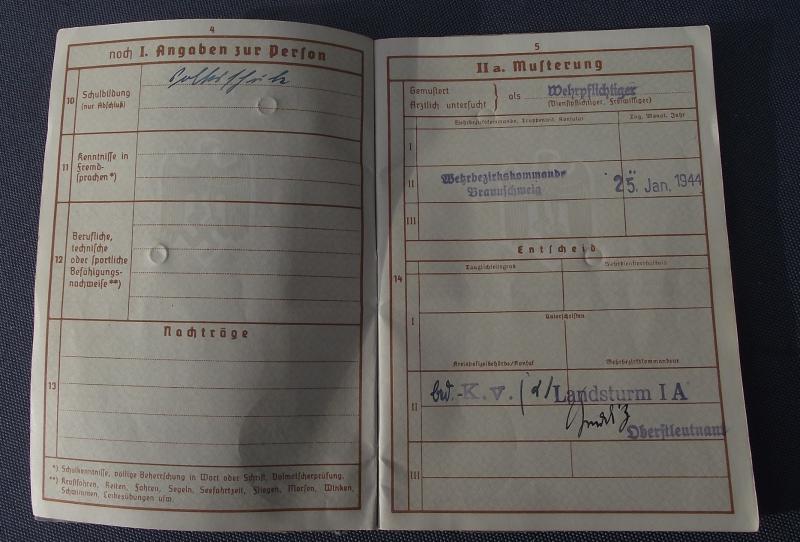 4
noch I. Angaben zur Person
10
Schulbildung
(nur Abschluß)
Volksschule
11
Kenntnisse in
Fremd-
sprachen*)
12
Berufliche,
technische
oder sportliche
Befähigungs-
nachweise**)
Nachträge
13
*) Schulkenntnisse, völlige Beherrschung in Wort oder Schrift, Dolmetscherprüfung.
**) Kraftfahren, Reiten, Fahren, Segeln, Seefahrtzeit, Fliegen, Morsen, Winken,
Schwimmen, Leibesübungen usw.
5
II a. Musterung
Gemustert
Ärztlich untersucht
als
Wehrpflichtiger
(Dienstpflichtiger, Freiwilliger)
Wehrbezirkskommando, Truppenteil, Konsulat
Tag, Monat, Jahr
I
II
Wehrbezirkskommando
Braunschweig
25. Jan. 1944
III
Entscheid
14
Tauglichkeitsgrad
Wehrdienstverhältnis
I
Unterschriften
Kreispolizeibehörde/Konsul
Wehrbezirkskommandeur
II
bed.-K.v.
Landsturm I A
Oberstleutnant
III